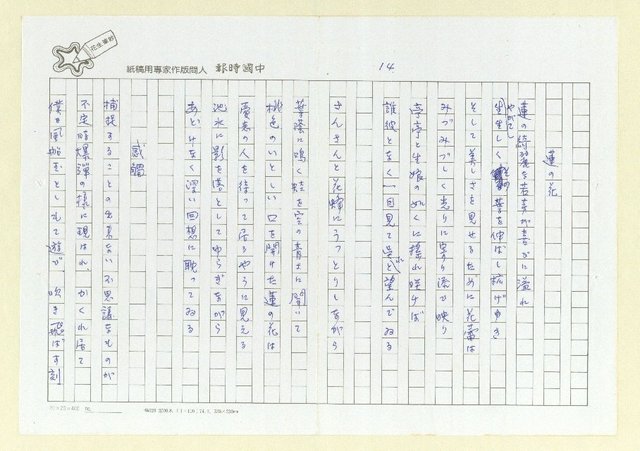 花生筆記
中國時報 人間版作家專用稿紙
14
蓮の花
蓮の綺麗な若芽が喜びに溢れ
やがて
生々しく 葉を伸ばし 抗げゆき
そして美しさを見せるために花蕾は
みづみづしく光りに寄り添ひ映り
亭亭と生娘の如くに揺れ咲けば
誰彼となく一目見て と望んでゐる
さんさんと花蜂にうっとりしながら
葉蔭に鳴く蛙を空の青さに聞いて
桃色のいとしい口を開けた蓮の花は
愛恋の人を待って居るやうに見える
池水に影を落としてゆらぎながら
あどけなく深い回想に耽ってゐる
感調
捕捉することの出来ない不思議なものが
不定時爆弾の様に現はれ、かくれ居て
僕を風船玉として遊び 吹き飛ばす刻
20×20=400